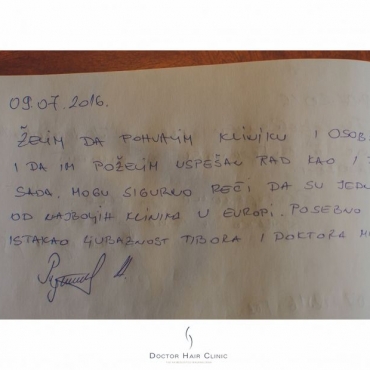 09.07.2016.
ŽELIM DA POHVALIM KLINIKU I OSOB
I DA IM POŽELIM USPEŠAN RAD KAO I
SADA. MOGU SIGURNO REĆI DA SU JEDN
OD NAJBOLJIH KLINIKA U EUROPI. POSEBNO
ISTAKAO LJUBAZNOST TIBORA I DOKTORA M
DOCTOR HAIR CLINIC